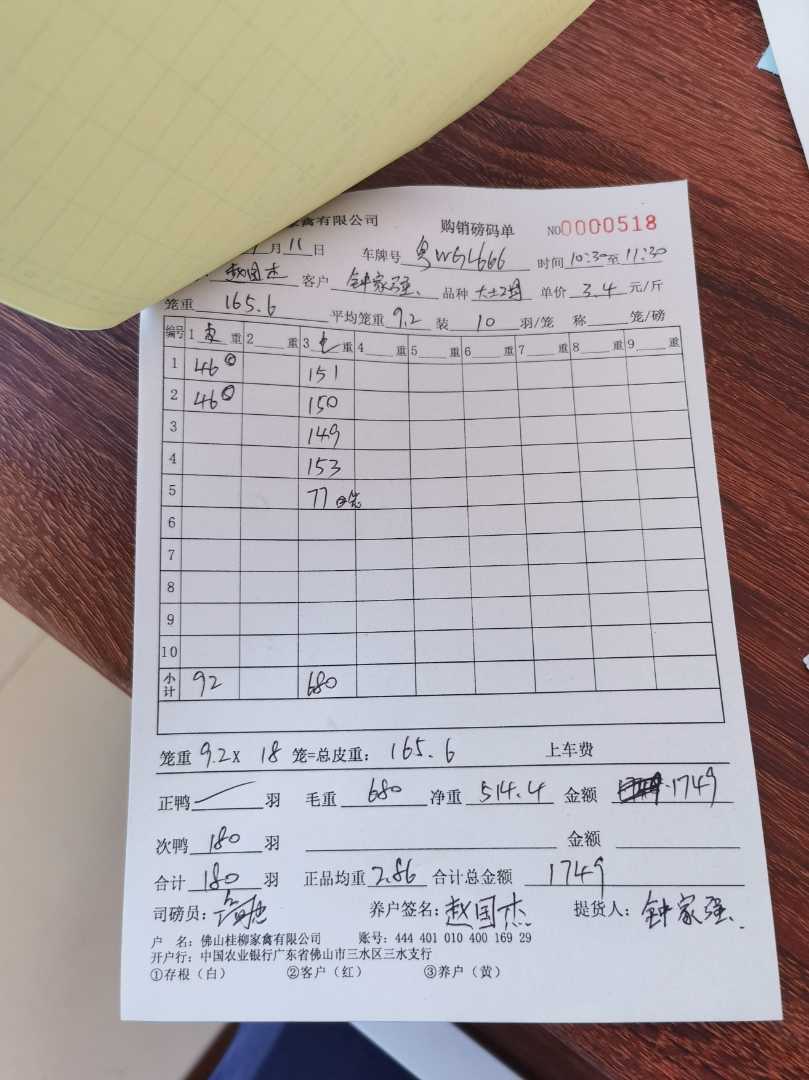 禽有限公司 购销磅码单 NO0000518
月 11 日 车牌号 粤WGL666 时间 10:30至11:30
赵国杰 客户 钟家强 品种 单价 3.4 元/斤
笼重 165.6 平均笼重 9.2 装 10 羽/笼 称 笼/磅
编号 1 皮 重 2 重 3 毛 重 4 重 5 重 6 重 7 重 8 重 9 重
1 46 151
2 46 150
3 149
4 153
5 77
6
7
8
9
10
小计 92 680
笼重 9.2 X 18 笼=总皮重: 165.6 上车费
正鸭 羽 毛重 680 净重 514.4 金额 1749
次鸭 180 羽 金额
合计 180 羽 正品均重 2.86 合计总金额 1749
司磅员: 养户签名: 赵国杰 提货人: 钟家强
户 名: 佛山桂柳家禽有限公司 账号: 444 401 010 400 169 29
开户行: 中国农业银行广东省佛山市三水区三水支行
①存根(白) ②客户(红) ③养户(黄)